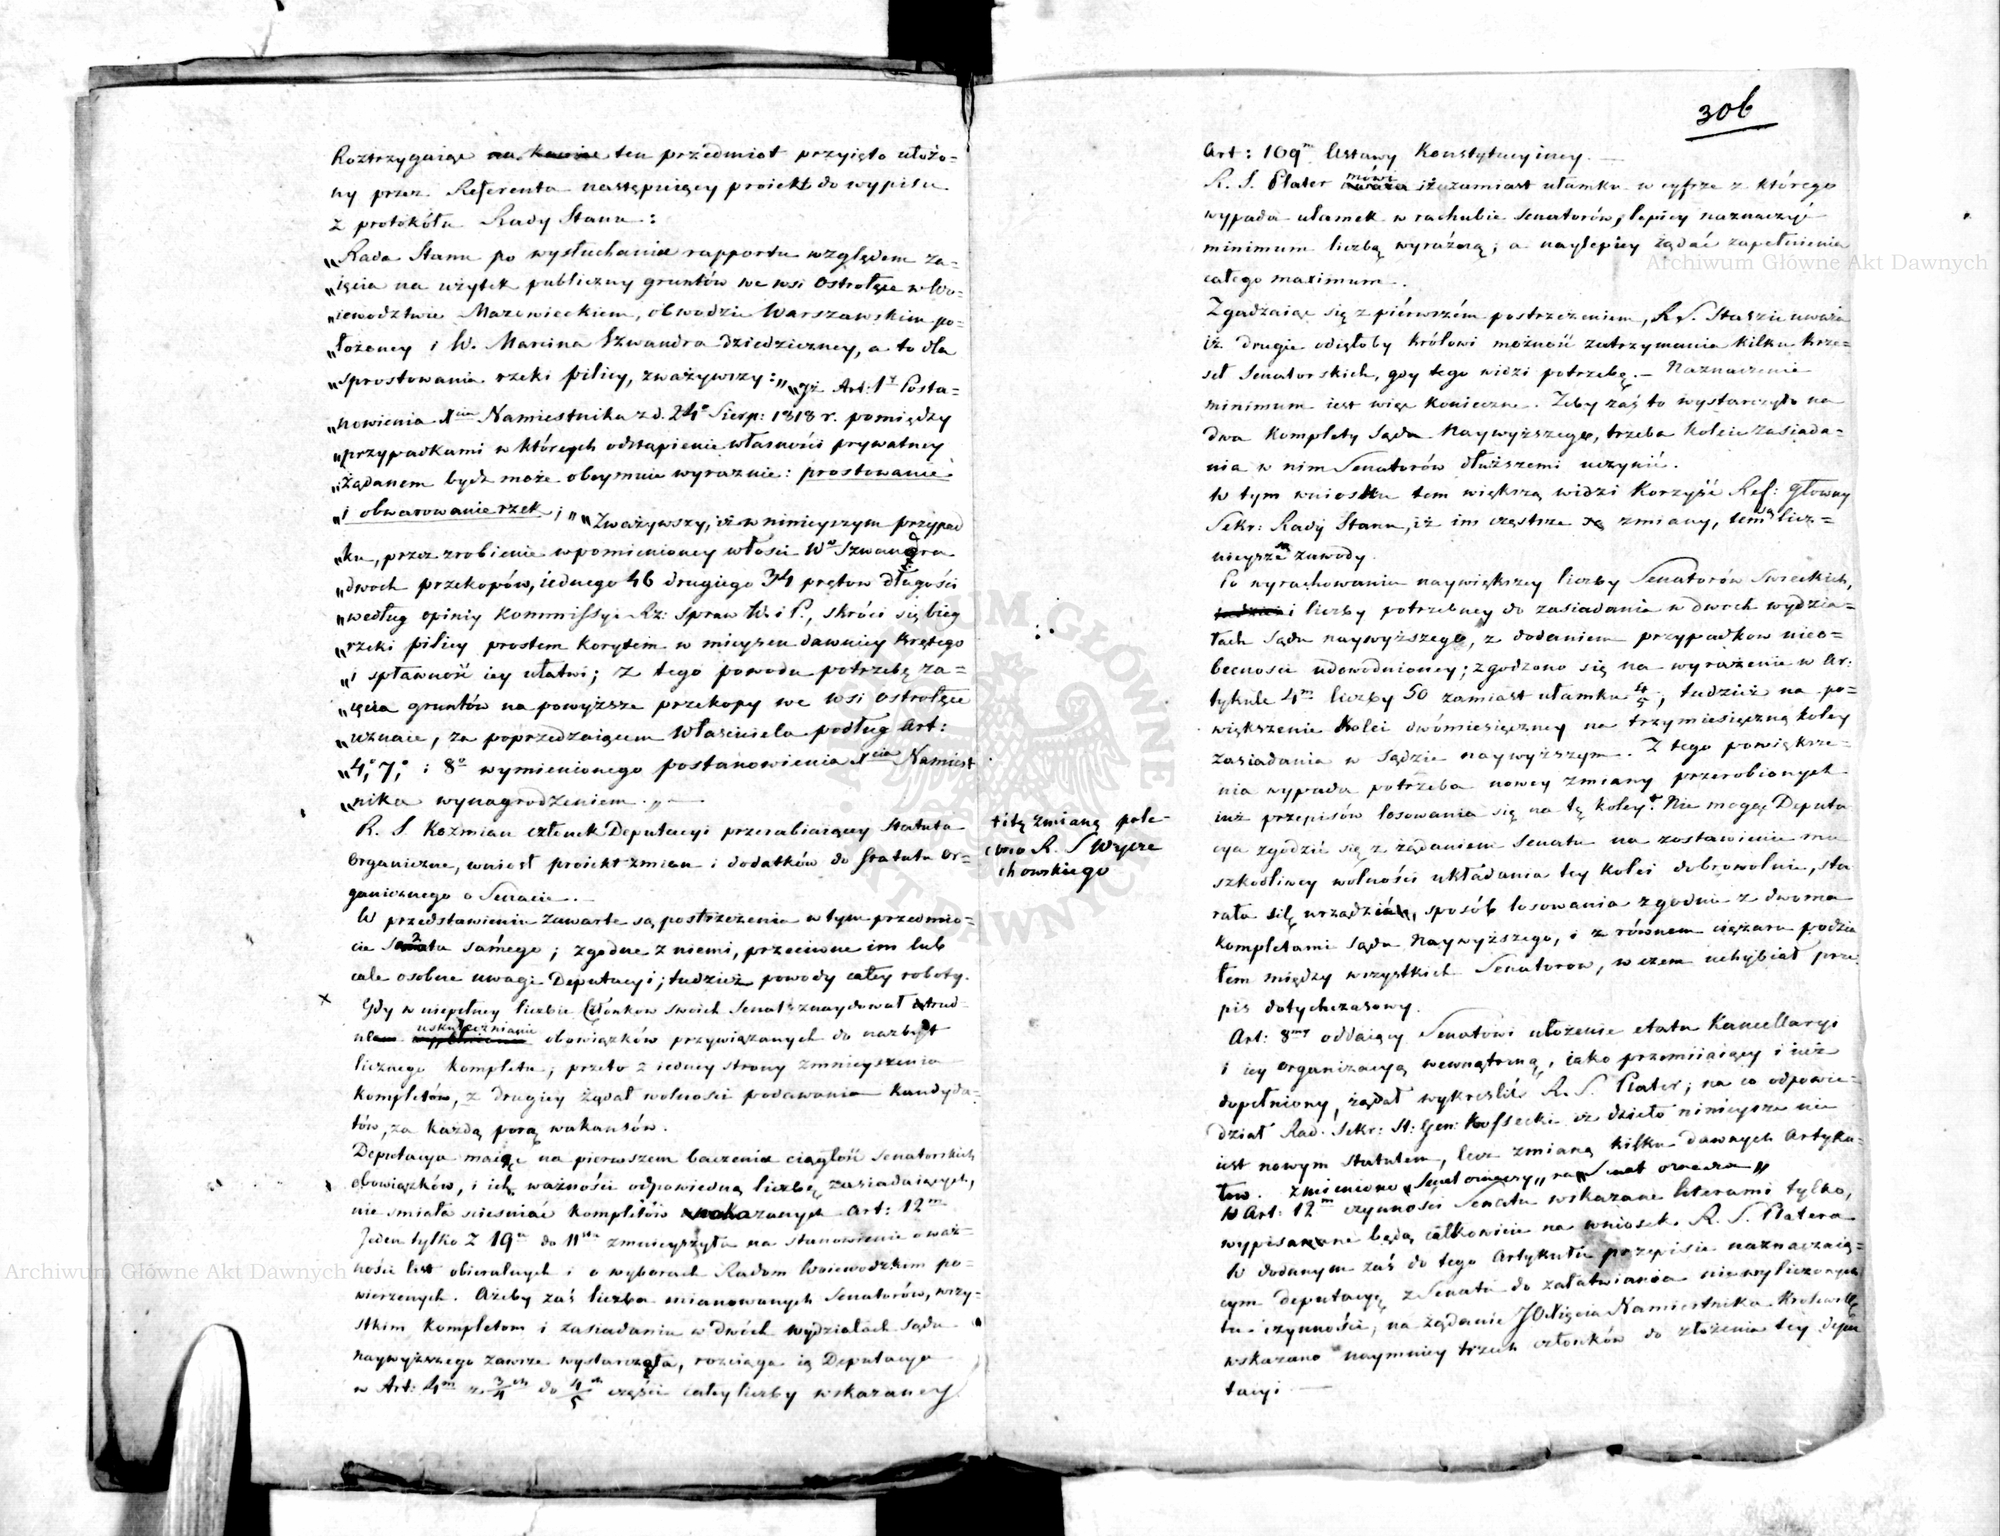 Roztrzygaiąc ten przedmiot przyięto ułożo-
ny przez Referenta następuiący proiekt do wypisu
z protokółu Rady Stanu:
„Rada Stanu po wysłuchaniu rapportu względem za-
„ięcia na użytek publiczny gruntów we wsi Ostrołęce w Wo-
„iewodztwie Mazowieckiem, obwodzie Warszawskim po-
„łożoney i W. Marcina Szwandra dziedziczney, a to dla
„sprostowania rzeki pilicy, zważywszy: „„iż Art: 1y Posta-
„nowienia Xcia Namiestnika z d. 24o Sierp: 1818 r. pomiędzy
„przypadkami w których odstąpienie własności prywatney
„żądanem bydź może obeymuie wyraznie: prostowanie
„i obwarowanie rzek; „ „Zważywszy, iż w ninieyszym przypad
„ku, przez zrobienie wpomienioney włości Wo Szwandra
„dwoch przekopów, iednego 46 drugiego 34 prętow długości
„według opiniy Kommissyi Rz: Spraw W. i P., skróci się bieg
„rzeki pilicy prostem korytem w mieyscu dawniey krętego
„i spławność iey ułatwi; z tego powodu potrzebę za-
„ięcia gruntów na powyższe przekopy we wsi Ostrołęce
„uznaie, za poprzedzaiącem Właściciela podług Art:
„4o, 7o, i 8o wymienionego postanowienia Xcia Namiest
„nika wynagrodzeniem. „ —
R. S. Kozmian członek Deputacyi przerabiaiącey Statuta
Organiczne, wniosł proiekt zmian i dodatków do Statutu Or-
ganicznego o Senacie. —
W przedstawieniu zawarte są, postrzeżenia w tym przedmio-
cie Senatu samego; zgodne z niemi, przeciwne im lub
cale osobne uwagi Deputacyi; tudzież powody całey roboty.
x Gdy w niepełney liczbie Członkow swoich Senat znaydował trud-
uskutecznianie obowiązków przywiązanych do nazbyt
licznego kompletu; przeto z iedney strony zmnieyszenia
kompletów, z drugiey żądał wolności podawania kandyda-
tów, za każdą porą wakansów.
Deputacya maiąc na pierwszem baczeniu ciągłość Senatorskich
obowiązków, i ich ważności odpowiedną liczbę zasiadaiących,
nie smiała scieśniać kompletów wskazanych Art: 12m
Jeden tylko z 19u do 11stu zmnieyszyła na stanowienie o waż-
ności list obieralnych i o wyborach Radom Woiewodzkim po-
wierzonych. Ażeby zaś liczba mianowanych Senatorów, wszy-
stkim kompletom i zasiadaniu w dwóch wydziałach Sądu
naywyższego zawsze wystarczała, rozciąga ią Deputacya
w Art: 4m z 3/4ch do 4/5ch części całey liczby wskazaney
306
Art: 109m Ustawy Konstytucyiney. —
R. S. Plater mówi iż zamiast ułamku w cyfrze z którego
wypada ułamek w rachubie Senatorów, lepiey naznaczyć
minimum liczbą wyraźną; a naylepiey żądać zapełnienia
całego maximum.
Zgadzaiąc się z piérwszém postrzeżeniem, R. S. Staszic uważa
iż drugie odięłoby Królowi możność zatrzymania kilku krze-
seł Senatorskich, gdy tego widzi potrzebę. — Naznaczenie
minimum iest więc konieczne. Żeby zaś to wystarczyło na
dwa komplety Sądu Naywyższego, trzeba kolcie zasiada-
nia w nim Senatorów dłuższemi uczynić.
W tym wniosku tem większą widzi korzyść Ref: Głowny
Sekr: Rady Stanu, iż im częstsze są zmiany, tem są licz-
nieysze zawody.
Po wyrachowaniu naywiększey liczby Senatorów Swieckich,
i liczby potrzebney do zasiadania w dwoch wydzia-
łach Sądu naywyższego, z dodaniem przypadkow nieo-
becności udowodnioney; zgodzono się na wyrażenie w Ar:
tykule 4m liczby 50 zamiast ułamku 4/5; tudzież na po-
większenie kolei dwómiesięczney na trzymiesięczną koley
zasiadania w Sądzie naywyższym. Z tego powiększe-
nia wypada potrzeba nowey zmiany przerobionych
iuż przepisów losowania się na tę koley+. Nie mogąc Deputa
cya zgodzić się z żądaniem Senatu na zostawienie mu
szkodliwey wolności układania tey kolei dobrowolnie, sta
rała się urządzić sposób losowania zgodnie z dwoma
kompletami Sądu Naywyższego, i z równem ciężaru podzia
łem między wszystkich Senatorow, w czem uchybiał prze
pis dotychczasowy.
+ tę zmianą pole-
cono R. S Wycze
chowskiego
Art: 8my oddaiący Senatowi ułożenie etatu Kancellaryi
i iey organizacyą wewnątrzną, iako przemiiaiący i iuż
dopełniony, żądał wykreślić R. S. Plater; na co odpowie-
dział Rad. Sekr: St: Gen: Kossecki iż dzieło ninieysze nie
iest nowym Statutem, lecz zmianą kilku dawnych Artyku-
łow. zmieniono „Senat orzeczy„ na „Senat orzeka„
W Art: 12m czynności Senatu wskazane literami tylko,
wypisane będą całkowicie na wniosek R. S. Platera
W dodanym zaś do tego Artykułu przepisie naznaczaią-
cym deputacyę z Senatu do załatwiania niewyliczonych
tu czynności, na żądanie JO Xięcia Namiestnika Królewskę
wskazano naymniey trzech członków do złożenia tey depu
tacyi —
Archiwum Główne Akt Dawnych
Archiwum Główne Akt Dawnych